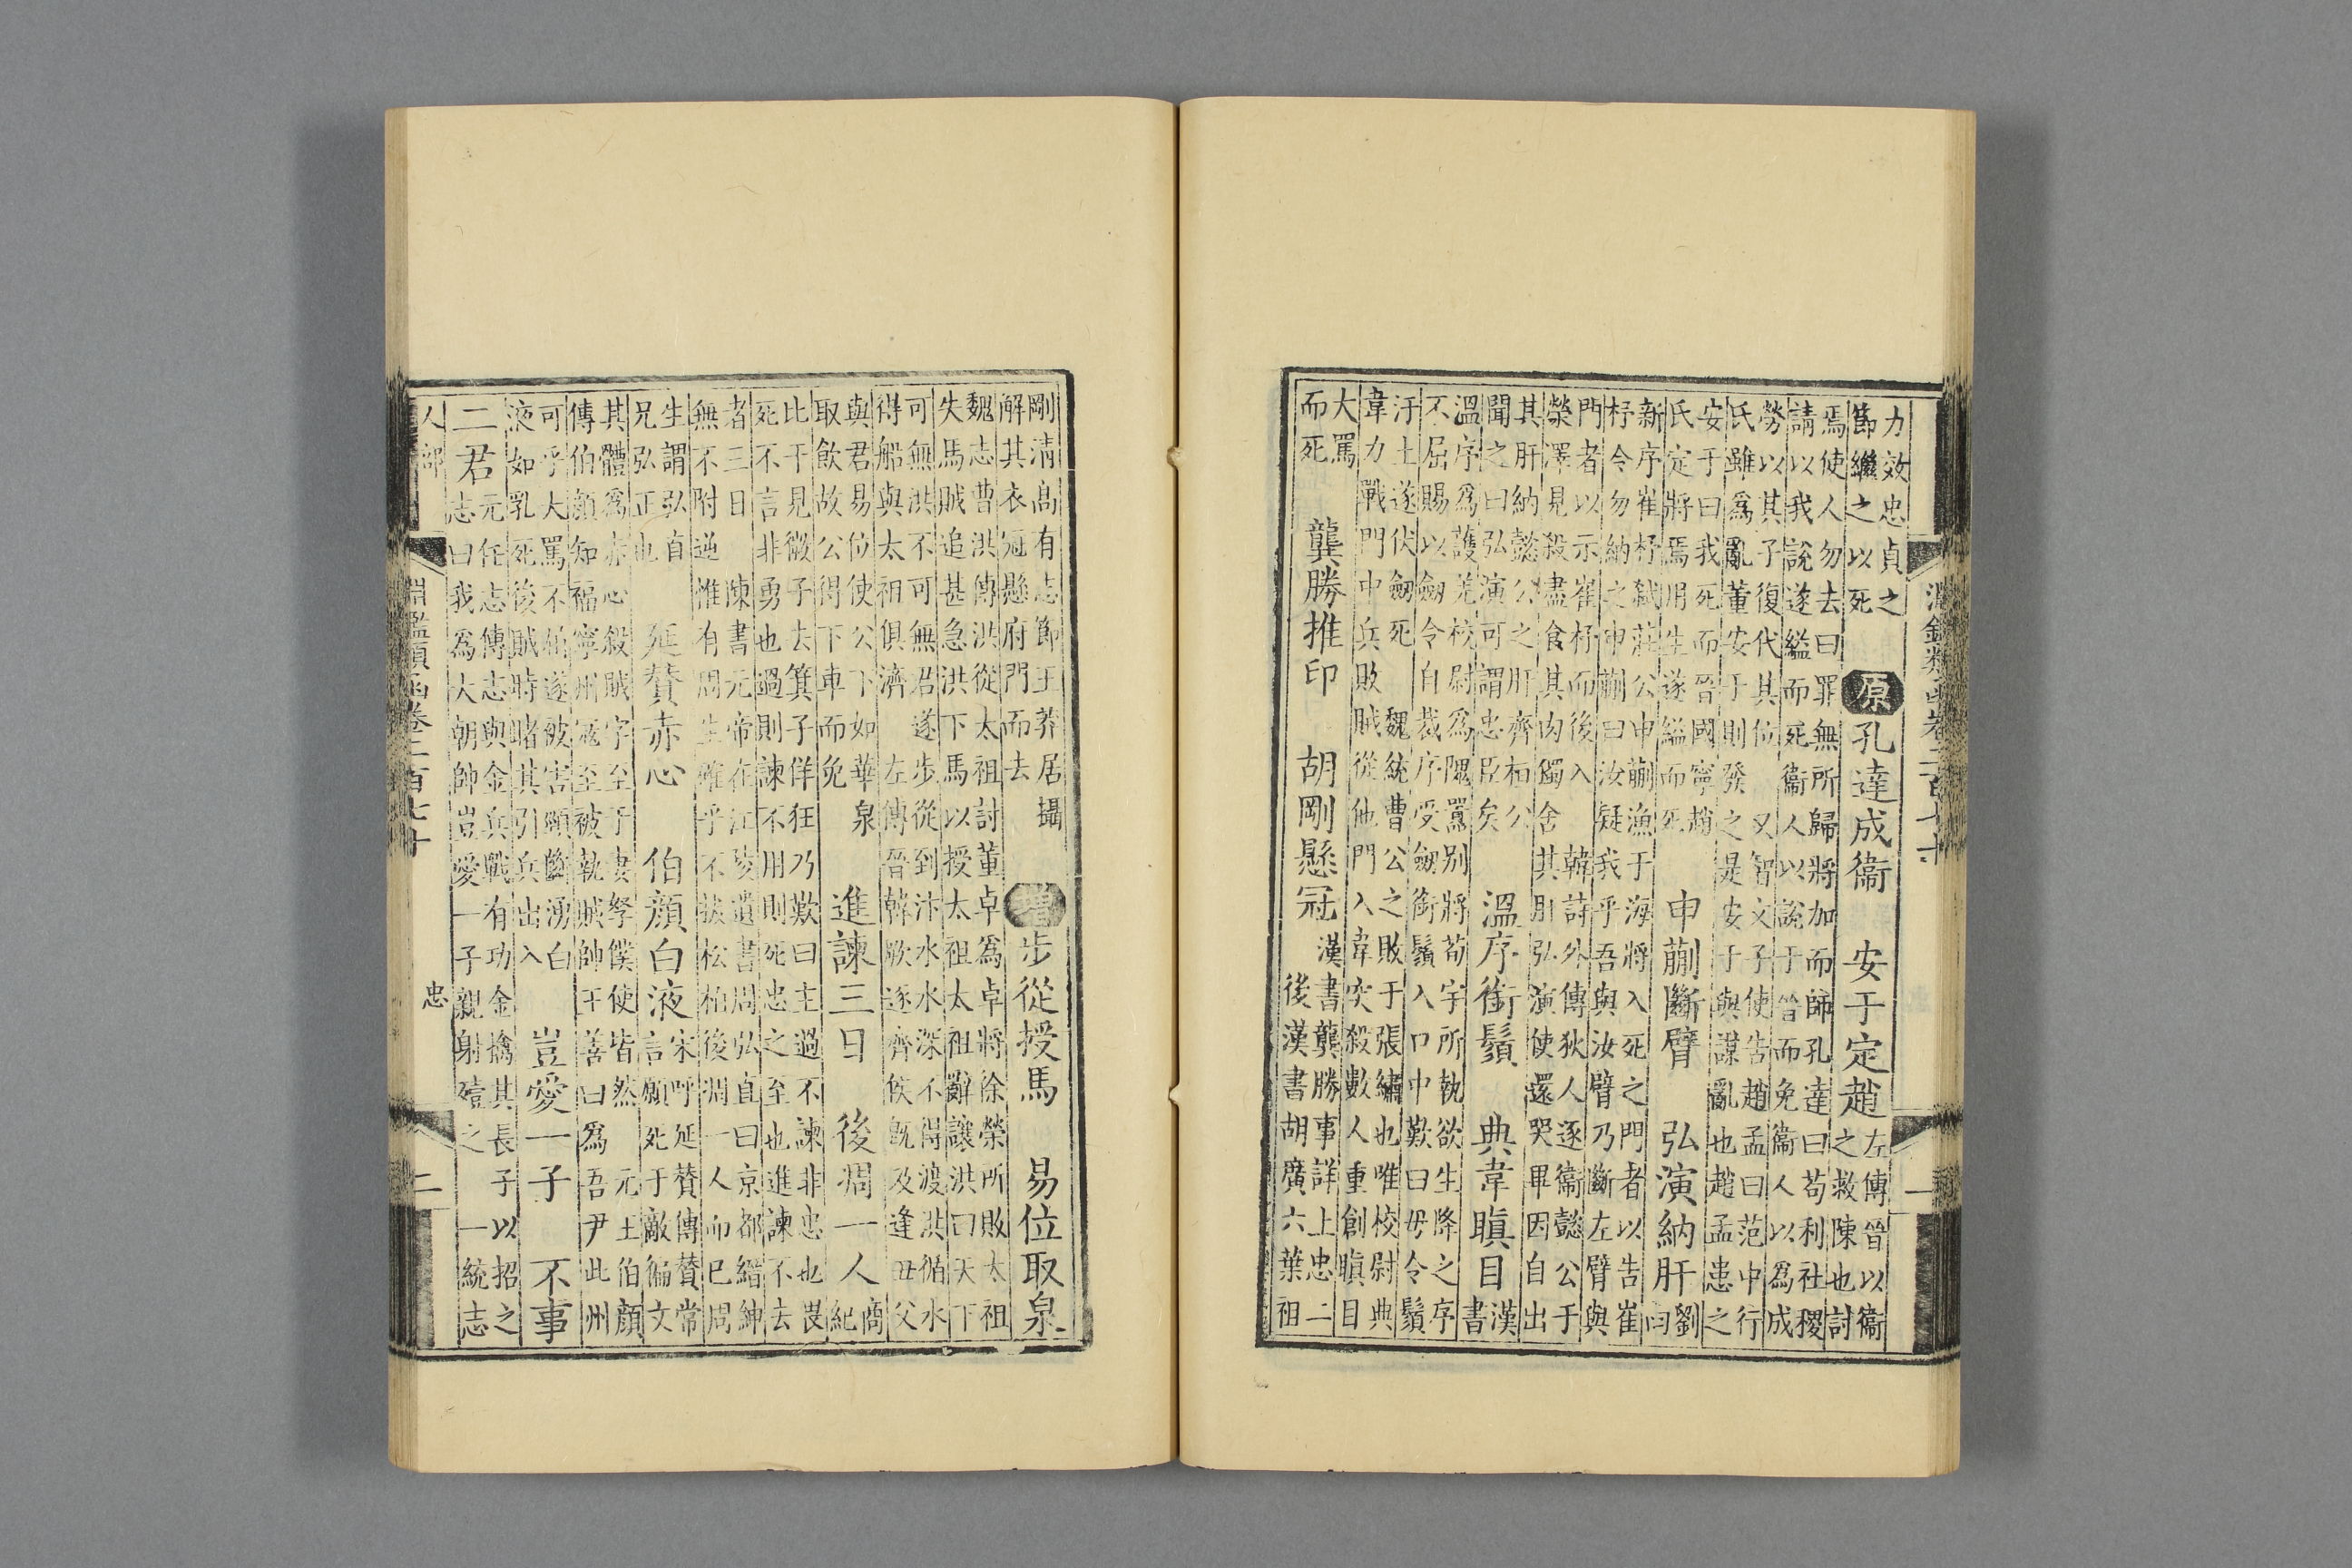 力效忠貞之
節繼之以死
原 孔達成衞 安于定趙
左傳晉以衞
之救陳也討
焉使人勿去曰罪無所歸將加而師孔達曰苟利社稷
請以我說遂縊而死衞人以說于晉而免衞人以爲成
勞以其子復代其位 又智文子使告趙孟曰范中行
氏雖爲亂董安于則發之是安于與謀亂也趙孟患之
安于曰我死而晉國寧趙
氏定將焉用生遂縊而死
申蒯斷臂 弘演納肝
劉
向
新序崔杼弑莊公申蒯漁于海將入死之門者以告崔
杼令勿納之申蒯曰汝疑我乎吾與汝臂乃斷左臂與
門者以示崔杼而後入 韓詩外傳狄人逐衞懿公于
榮澤見殺盡食其肉獨舍其肝弘演使還哭畢因自出
其肝納懿公之肝齊桓公
聞之曰弘演可謂忠臣矣
溫序銜鬚 典韋瞋目
漢
書
溫序爲護羌校尉爲隗囂别將荀宇所執欲生降之序
不屈賜以劒令自裁序受劒銜鬚入口中歎曰毋令鬚
汙土遂伏劒死 魏統曹公之敗于張繡也唯校尉典
韋力戰門中兵敗賊從他門入韋突殺數人重創瞋目
大罵
而死
龔勝推印 胡剛懸冠
漢書龔勝事詳上忠二
後漢書胡廣六葉祖
剛淸高有志節王莽居攝
解其衣冠懸府門而去
增 步從授馬 易位取泉
魏志曹洪傳洪從太祖討董卓爲卓將徐榮所敗太祖
失馬賊追甚急洪下馬以授太祖太祖辭讓洪曰天下
可無洪不可無君遂步從到汴水水深不得渡洪循水
得船與太祖俱濟 左傳晉韓厥逐齊侯旣及逢丑父
與君易位使公下如華泉
取飲故公得下車而免
進諫三日 後凋一人
商
紀
比干見微子去箕子佯狂乃歎曰主過不諫非忠也畏
死不言非勇也過則諫不用則死忠之至也進諫不去
者三日 陳書元帝在江陵遺書周弘直曰京都縉紳
無不附逆惟有周生確乎不拔松柏後凋一人而已周
生謂弘直
兄弘正也
延贊赤心 伯顔白液
宋呼延贊傳贊常
言願死于敵徧文
其體爲赤心殺賊字至于妻孥僕使皆然 元王伯顔
傳伯顔知福寧州寇至被執賊帥王善曰爲吾尹此州
可乎大罵不 遂被害頸斷湧白
液如乳死後賊時睹其引兵出入
豈愛一子 不事
二君
元任志傳志與金兵戰有功金擒其長子以招之
志曰我爲大朝帥豈愛一子親射殪之 一統志
人部 淵鑑類函卷二百七十 忠 二